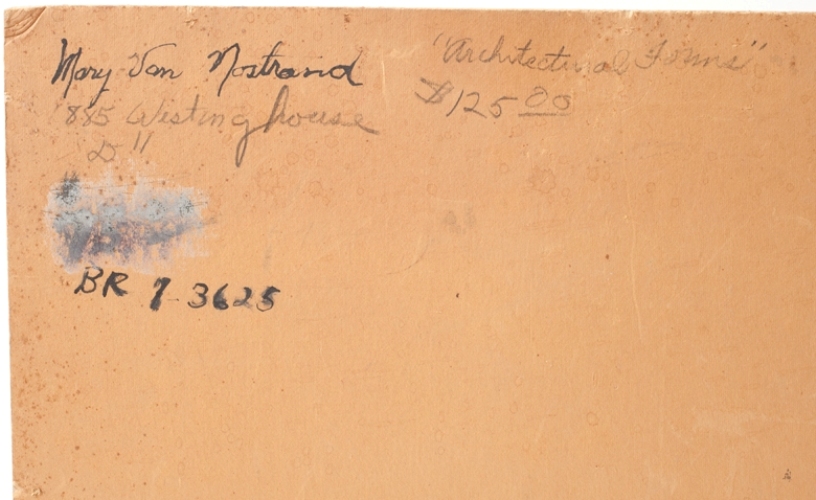 Mary Van Nostrand
885 Westinghouse
D"
BR 7-3625
"Architectural Forms"
$125 00